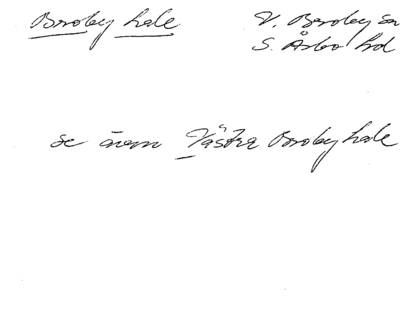 Broby hale
V. Broby sn
S. Åsbo hd
se även Västra Broby hale